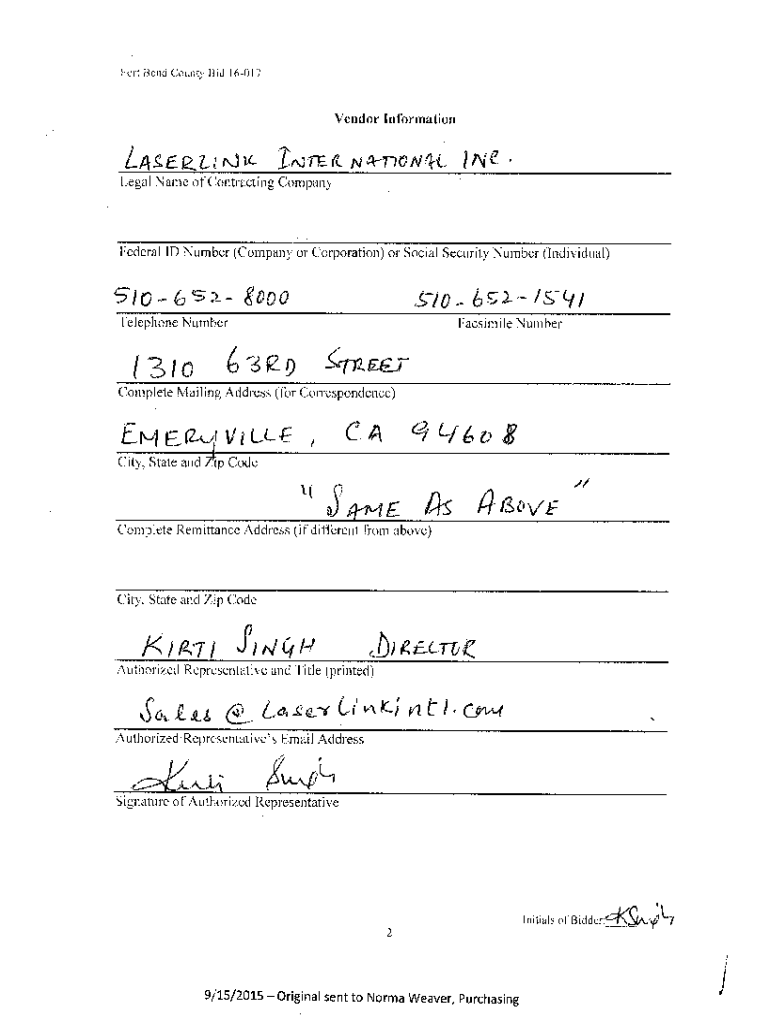 Fort Bend County Bid 16-017
Vendor Information
LASERLINK INTERNATIONAL INC.
Legal Name of Contracting Company
Federal ID Number (Company or Corporation) or Social Security Number (Individual)
510-652-8000 510-652-1541
Telephone Number Facsimile Number
1310 63RD STREET
Complete Mailing Address (for Correspondence)
EMERYVILLE, CA 94608
City, State and Zip Code
"SAME AS ABOVE"
Complete Remittance Address (if different from above)
City, State and Zip Code
KIRTI SINGH DIRECTOR
Authorized Representative and Title (printed)
Sales@Laserlinkintl.com
Authorized Representative's Email Address
Kirti Singh
Signature of Authorized Representative
Initials of Bidder: KSingh
2
9/15/2015 – Original sent to Norma Weaver, Purchasing